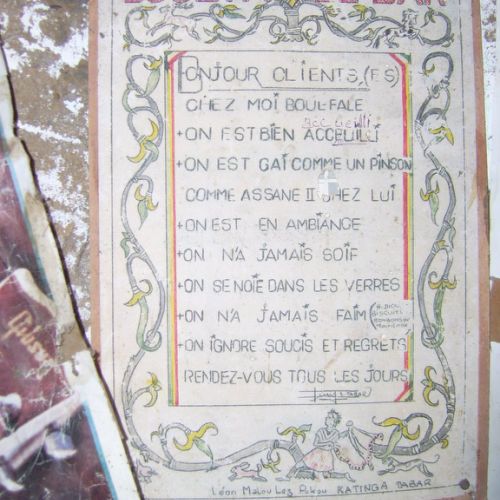 BONJOUR CLIENTS,(ES)
CHEZ MOI BOUL-FALE
accueilli
+ON EST BIEN ACCEUILLI
+ON EST GAI COMME UN PINSON
COMME ASSANE II CHEZ LUI
+ON EST EN AMBIANCE
+ON N'A JAMAIS SOIF
+ON SE NOIE DANS LES VERRES
+ON N'A JAMAIS FAIM
BISCUITS
+ON IGNORE SOUCIS ET REGRETS
RENDEZ-VOUS TOUS LES JOURS
Léon Malou Les KATINGA BABAR